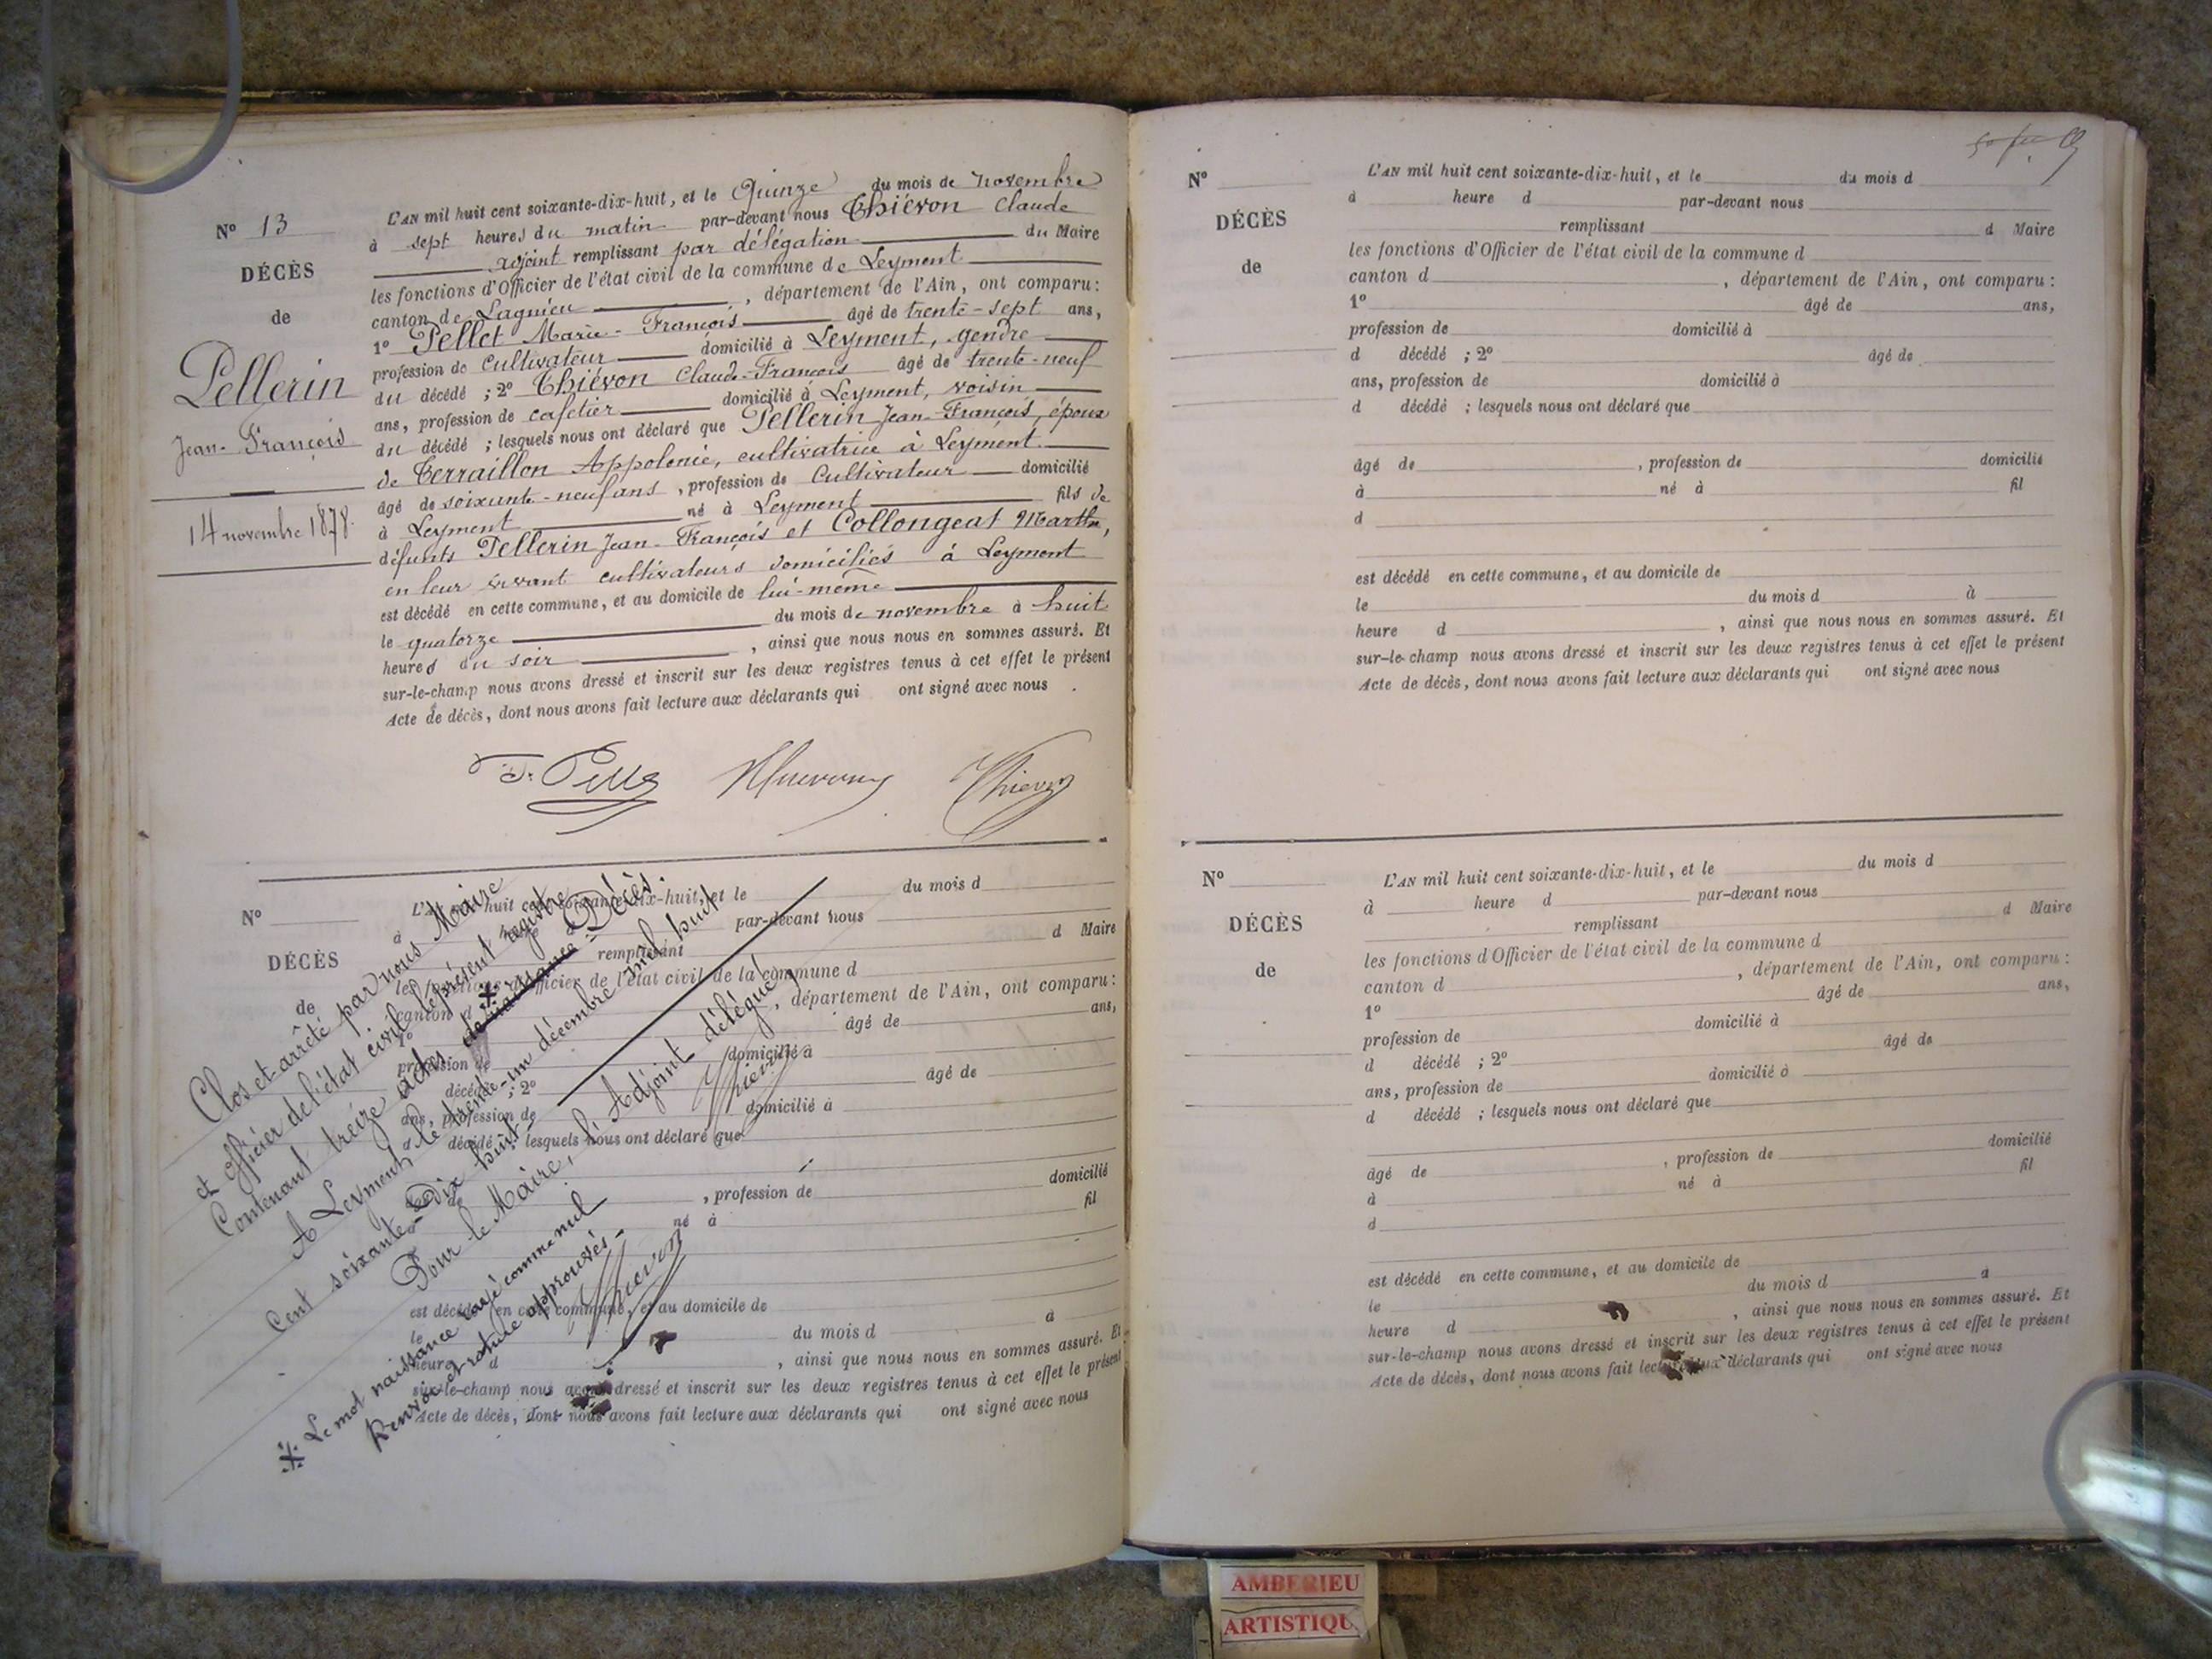 N° 13
DÉCÈS
de
Pellerin
Jean-François
14 novembre 1878.
L'AN mil huit cent soixante-dix-huit, et le Quinze du mois de novembre
à sept heures du matin par-devant nous Thiévon Claude
adjoint remplissant par délégation du Maire
les fonctions d'Officier de l'état civil de la commune de Leyment
canton de Lagnieu, département de l'Ain, ont comparu :
1° Pellet Marie-François âgé de trente-sept ans,
profession de cultivateur domicilié à Leyment, gendre
du décédé ; 2° Thiévon Claude-François âgé de trente-neuf
ans, profession de cafetier domicilié à Leyment, voisin
du décédé ; lesquels nous ont déclaré que Pellerin Jean-François, époux
de Terraillon Appolonie, cultivatrice à Leyment.
âgé de soixante-neuf ans, profession de Cultivateur domicilié
à Leyment né à Leyment fils de
défunts Pellerin Jean-François et Collongeat Marthe,
en leur vivant cultivateurs domiciliés à Leyment
est décédé en cette commune, et au domicile de lui-même
le quatorze du mois de novembre à huit
heures du soir, ainsi que nous nous en sommes assuré. Et
sur-le-champ nous avons dressé et inscrit sur les deux registres tenus à cet effet le présent
Acte de décès, dont nous avons fait lecture aux déclarants qui ont signé avec nous.
Thievon
N°
DÉCÈS
de
L'AN mil huit cent soixante-dix-huit, et le du mois d
à heure d par-devant nous
remplissant d Maire
les fonctions d'Officier de l'état civil de la commune d
canton d, département de l'Ain, ont comparu :
1° âgé de ans,
profession de domicilié à
d décédé ; 2° âgé de
ans, profession de domicilié à
d décédé ; lesquels nous ont déclaré que
âgé de, profession de domicilié
né à fil
est décédé en cette commune, et au domicile de
le du mois d à
heure d, ainsi que nous nous en sommes assuré. Et
sur-le-champ nous avons dressé et inscrit sur les deux registres tenus à cet effet le présent
Acte de décès, dont nous avons fait lecture aux déclarants qui ont signé avec nous
Clos et arrêté par nous Maire
et officier de l'état civil le présent registre
Contenant treize actes de naissance = Décès.
A Leyment le trente-un décembre mil huit
Cent soixante-Dix huit
Pour le Maire, l'Adjoint délégué,
Thievon
Le mot naissance rayé comme nul
Renvoi et rature approuvés.
Thievon
N°
DÉCÈS
de
L'AN mil huit cent soixante-dix-huit, et le du mois d
à heure d par-devant nous
remplissant d Maire
les fonctions d'Officier de l'état civil de la commune d
canton d, département de l'Ain, ont comparu :
1° âgé de ans,
profession de domicilié à
d décédé ; 2° âgé de
ans, profession de domicilié à
d décédé ; lesquels nous ont déclaré que
âgé de, profession de domicilié
à né à fil
d
est décédé en cette commune, et au domicile de
le du mois d à
heure d, ainsi que nous nous en sommes assuré. Et
sur-le-champ nous avons dressé et inscrit sur les deux registres tenus à cet effet le présent
Acte de décès, dont nous avons fait lecture aux déclarants qui ont signé avec nous
N°
DÉCÈS
de
L'AN mil huit cent soixante-dix-huit, et le du mois d
à heure d par-devant nous
remplissant d Maire
les fonctions d'Officier de l'état civil de la commune d
canton d, département de l'Ain, ont comparu :
1° âgé de ans,
profession de domicilié à
d décédé ; 2° âgé de
ans, profession de domicilié à
d décédé ; lesquels nous ont déclaré que
âgé de, profession de domicilié
à né à fil
d
est décédé en cette commune, et au domicile de
le du mois d à
heure d, ainsi que nous nous en sommes assuré. Et
sur-le-champ nous avons dressé et inscrit sur les deux registres tenus à cet effet le présent
Acte de décès, dont nous avons fait lecture aux déclarants qui ont signé avec nous
AMBERIEU
ARTISTIQU